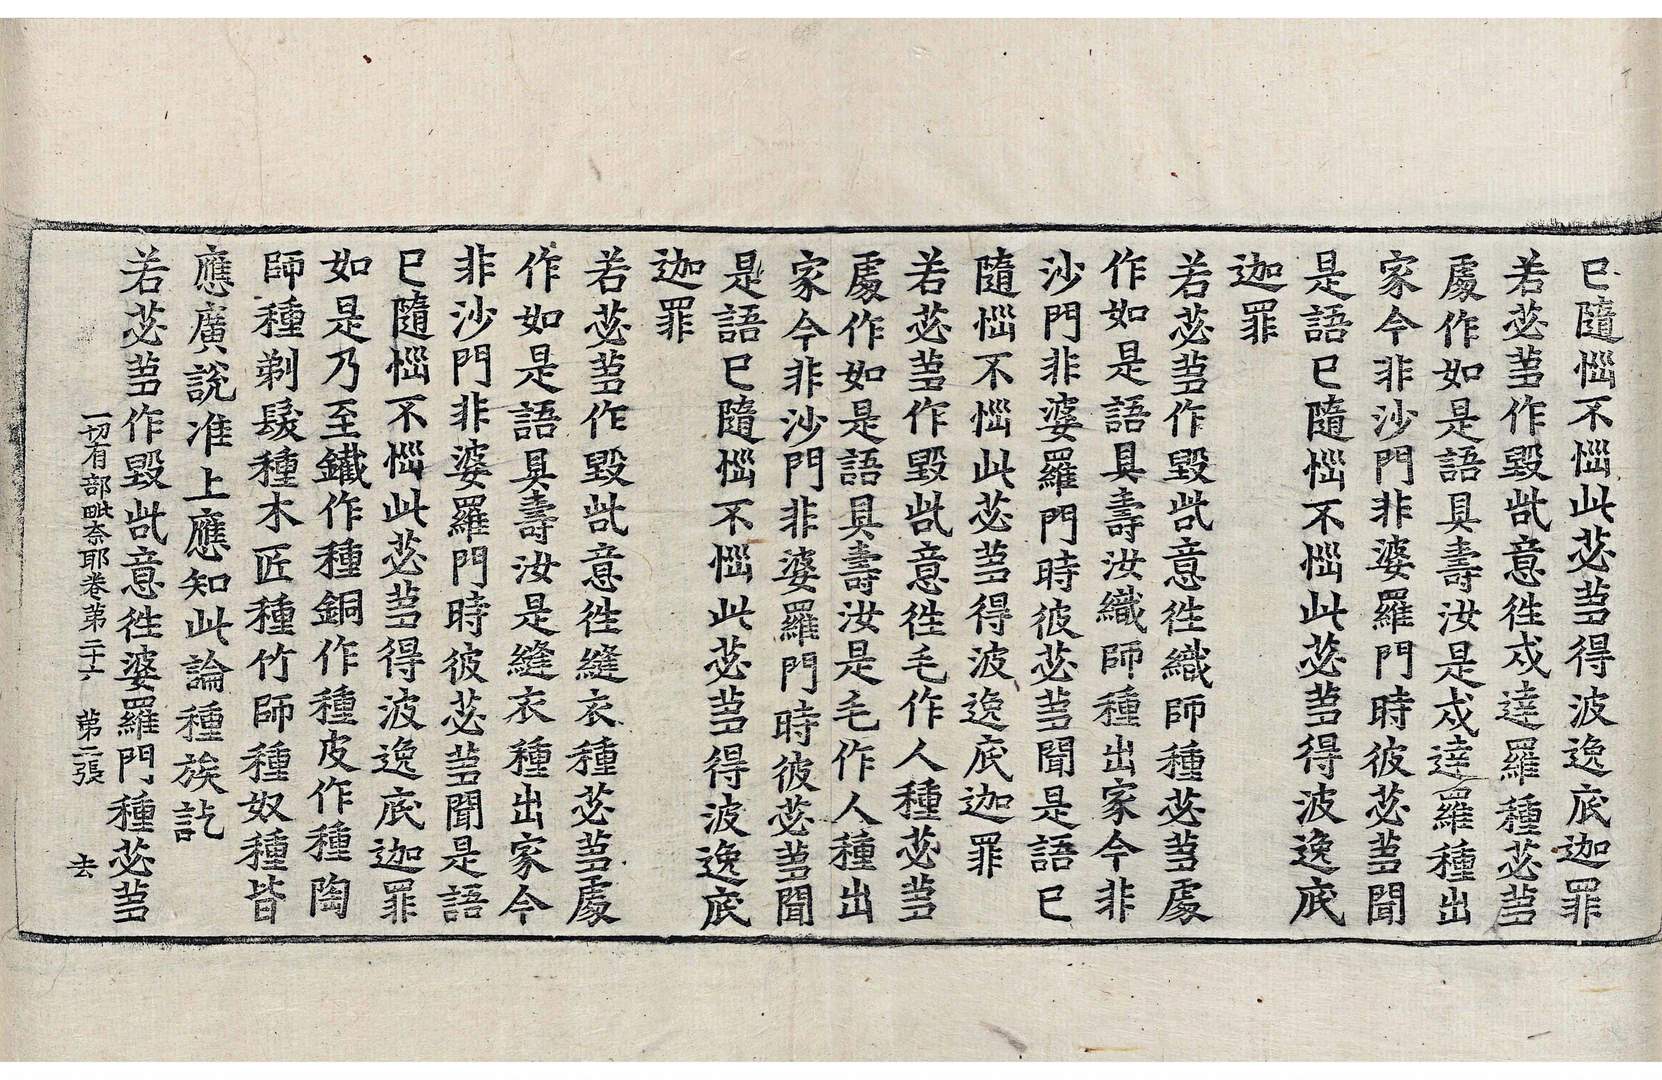 已隨惱不惱此苾芻得波逸底迦罪
若苾芻作毀呰意往戍達羅種苾芻
處作如是語具壽汝是戍達羅種出
家今非沙門非婆羅門時彼苾芻聞
是語已隨惱不惱此苾芻得波逸底
迦罪
若苾芻作毀呰意往織師種苾芻處
作如是語具壽汝織師種出家今非
沙門非婆羅門時彼苾芻聞是語已
隨惱不惱此苾芻得波逸底迦罪
若苾芻作毀呰意往毛作人種苾芻
處作如是語具壽汝是毛作人種出
家今非沙門非婆羅門時彼苾芻聞
是語已隨惱不惱此苾芻得波逸底
迦罪
若苾芻作毀呰意往縫衣種苾芻處
作如是語具壽汝是縫衣種出家今
非沙門非婆羅門時彼苾芻聞是語
已隨惱不惱此苾芻得波逸底迦罪
如是乃至鐵作種銅作種皮作種陶
師種剃髮種木匠種竹師種奴種皆
應廣說准上應知此論種族訖
若苾芻作毀呰意往婆羅門種苾芻
一切有部毗奈耶卷第二十六 第二張 去